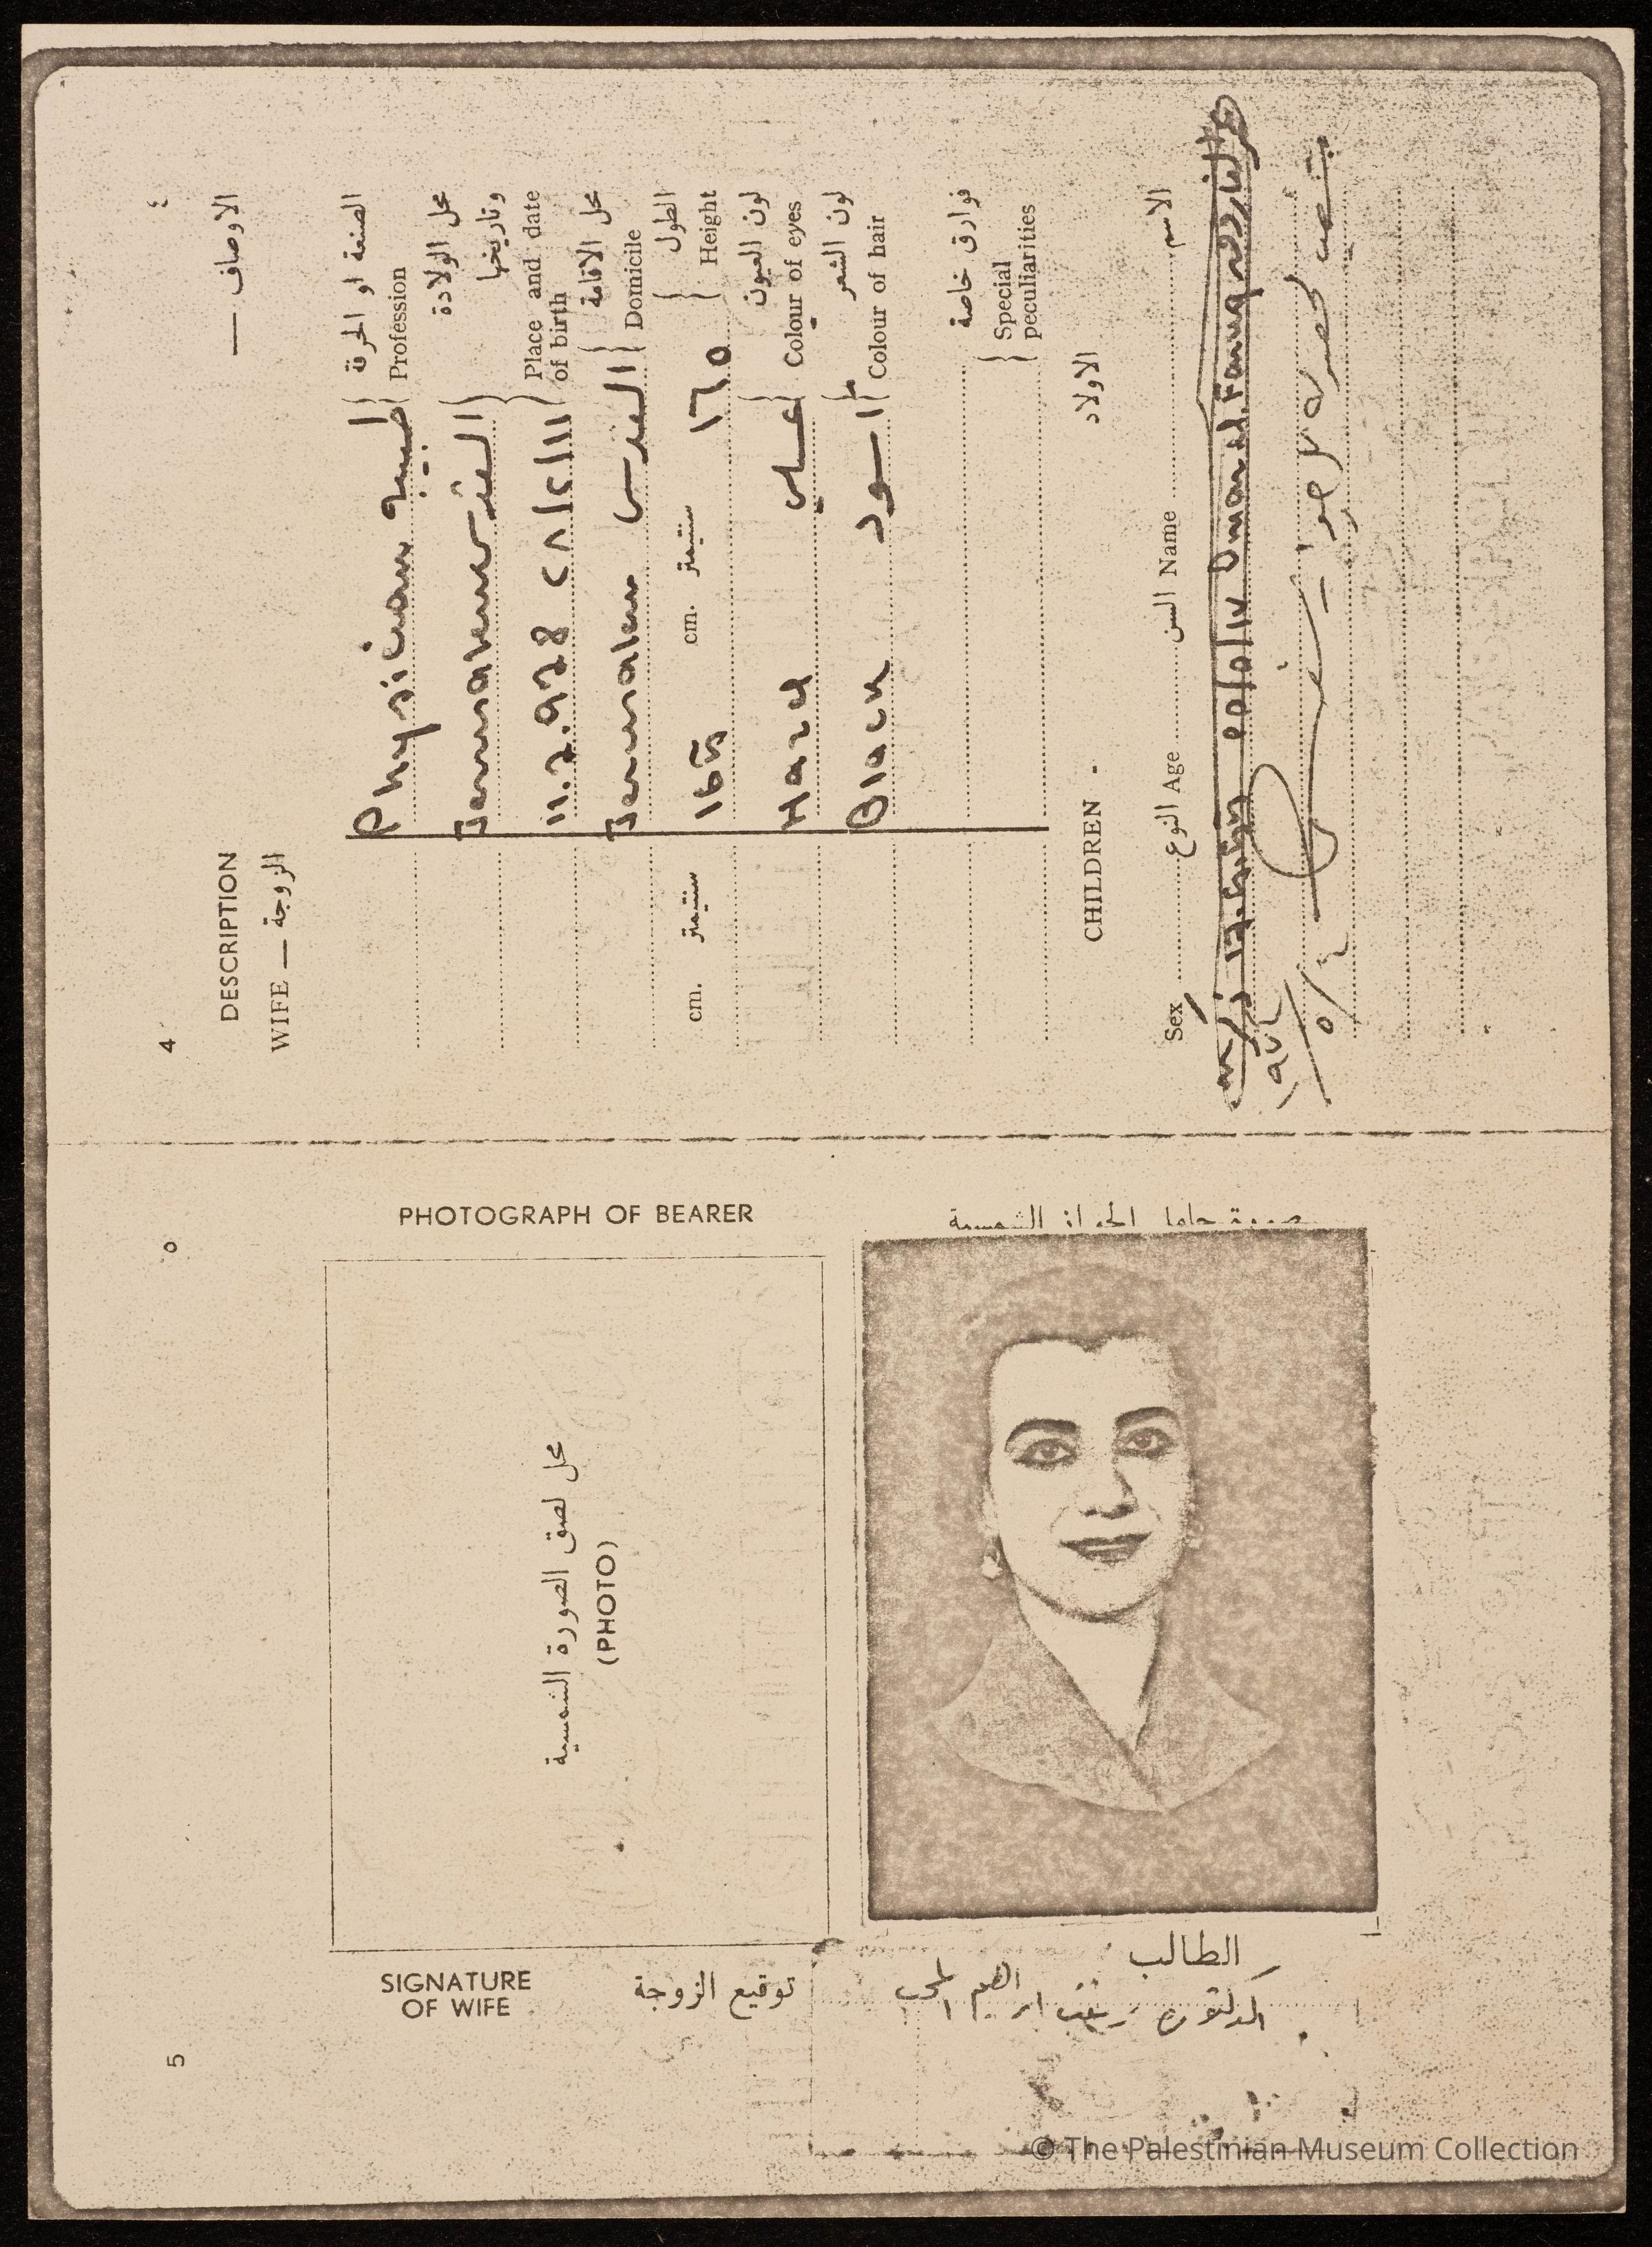 4
٤
DESCRIPTION
الاوصاف —
WIFE — الزوجة
Physician طبيبة
الصنعة او الحرفة
Profession
Jerusalem القدس
محل الولادة
وتاريخها
11.2.928 ٢٨/٢/١١
Place and date
of birth
Jerusalem القدس
محل الاقامة
Domicile
cm. سنتيمتر
165 cm. سنتيمتر ١٦٥
الطول
Height
Hazel عسلي
لون العيون
Colour of eyes
Black اسود
لون الشعر
Colour of hair
فوارق خاصة
Special
peculiarities
CHILDREN - الاولاد
Sex النوع Age السن Name الاسم
٥٥/٥/١٧ Omar
٥
PHOTOGRAPH OF BEARER
صورة حامل الجواز الشمسية
محل لصق الصورة الشمسية
(PHOTO)
SIGNATURE
OF WIFE
توقيع الزوجة
الطالب
الدكتورة ابراهيم
5
© The Palestinian Museum Collection